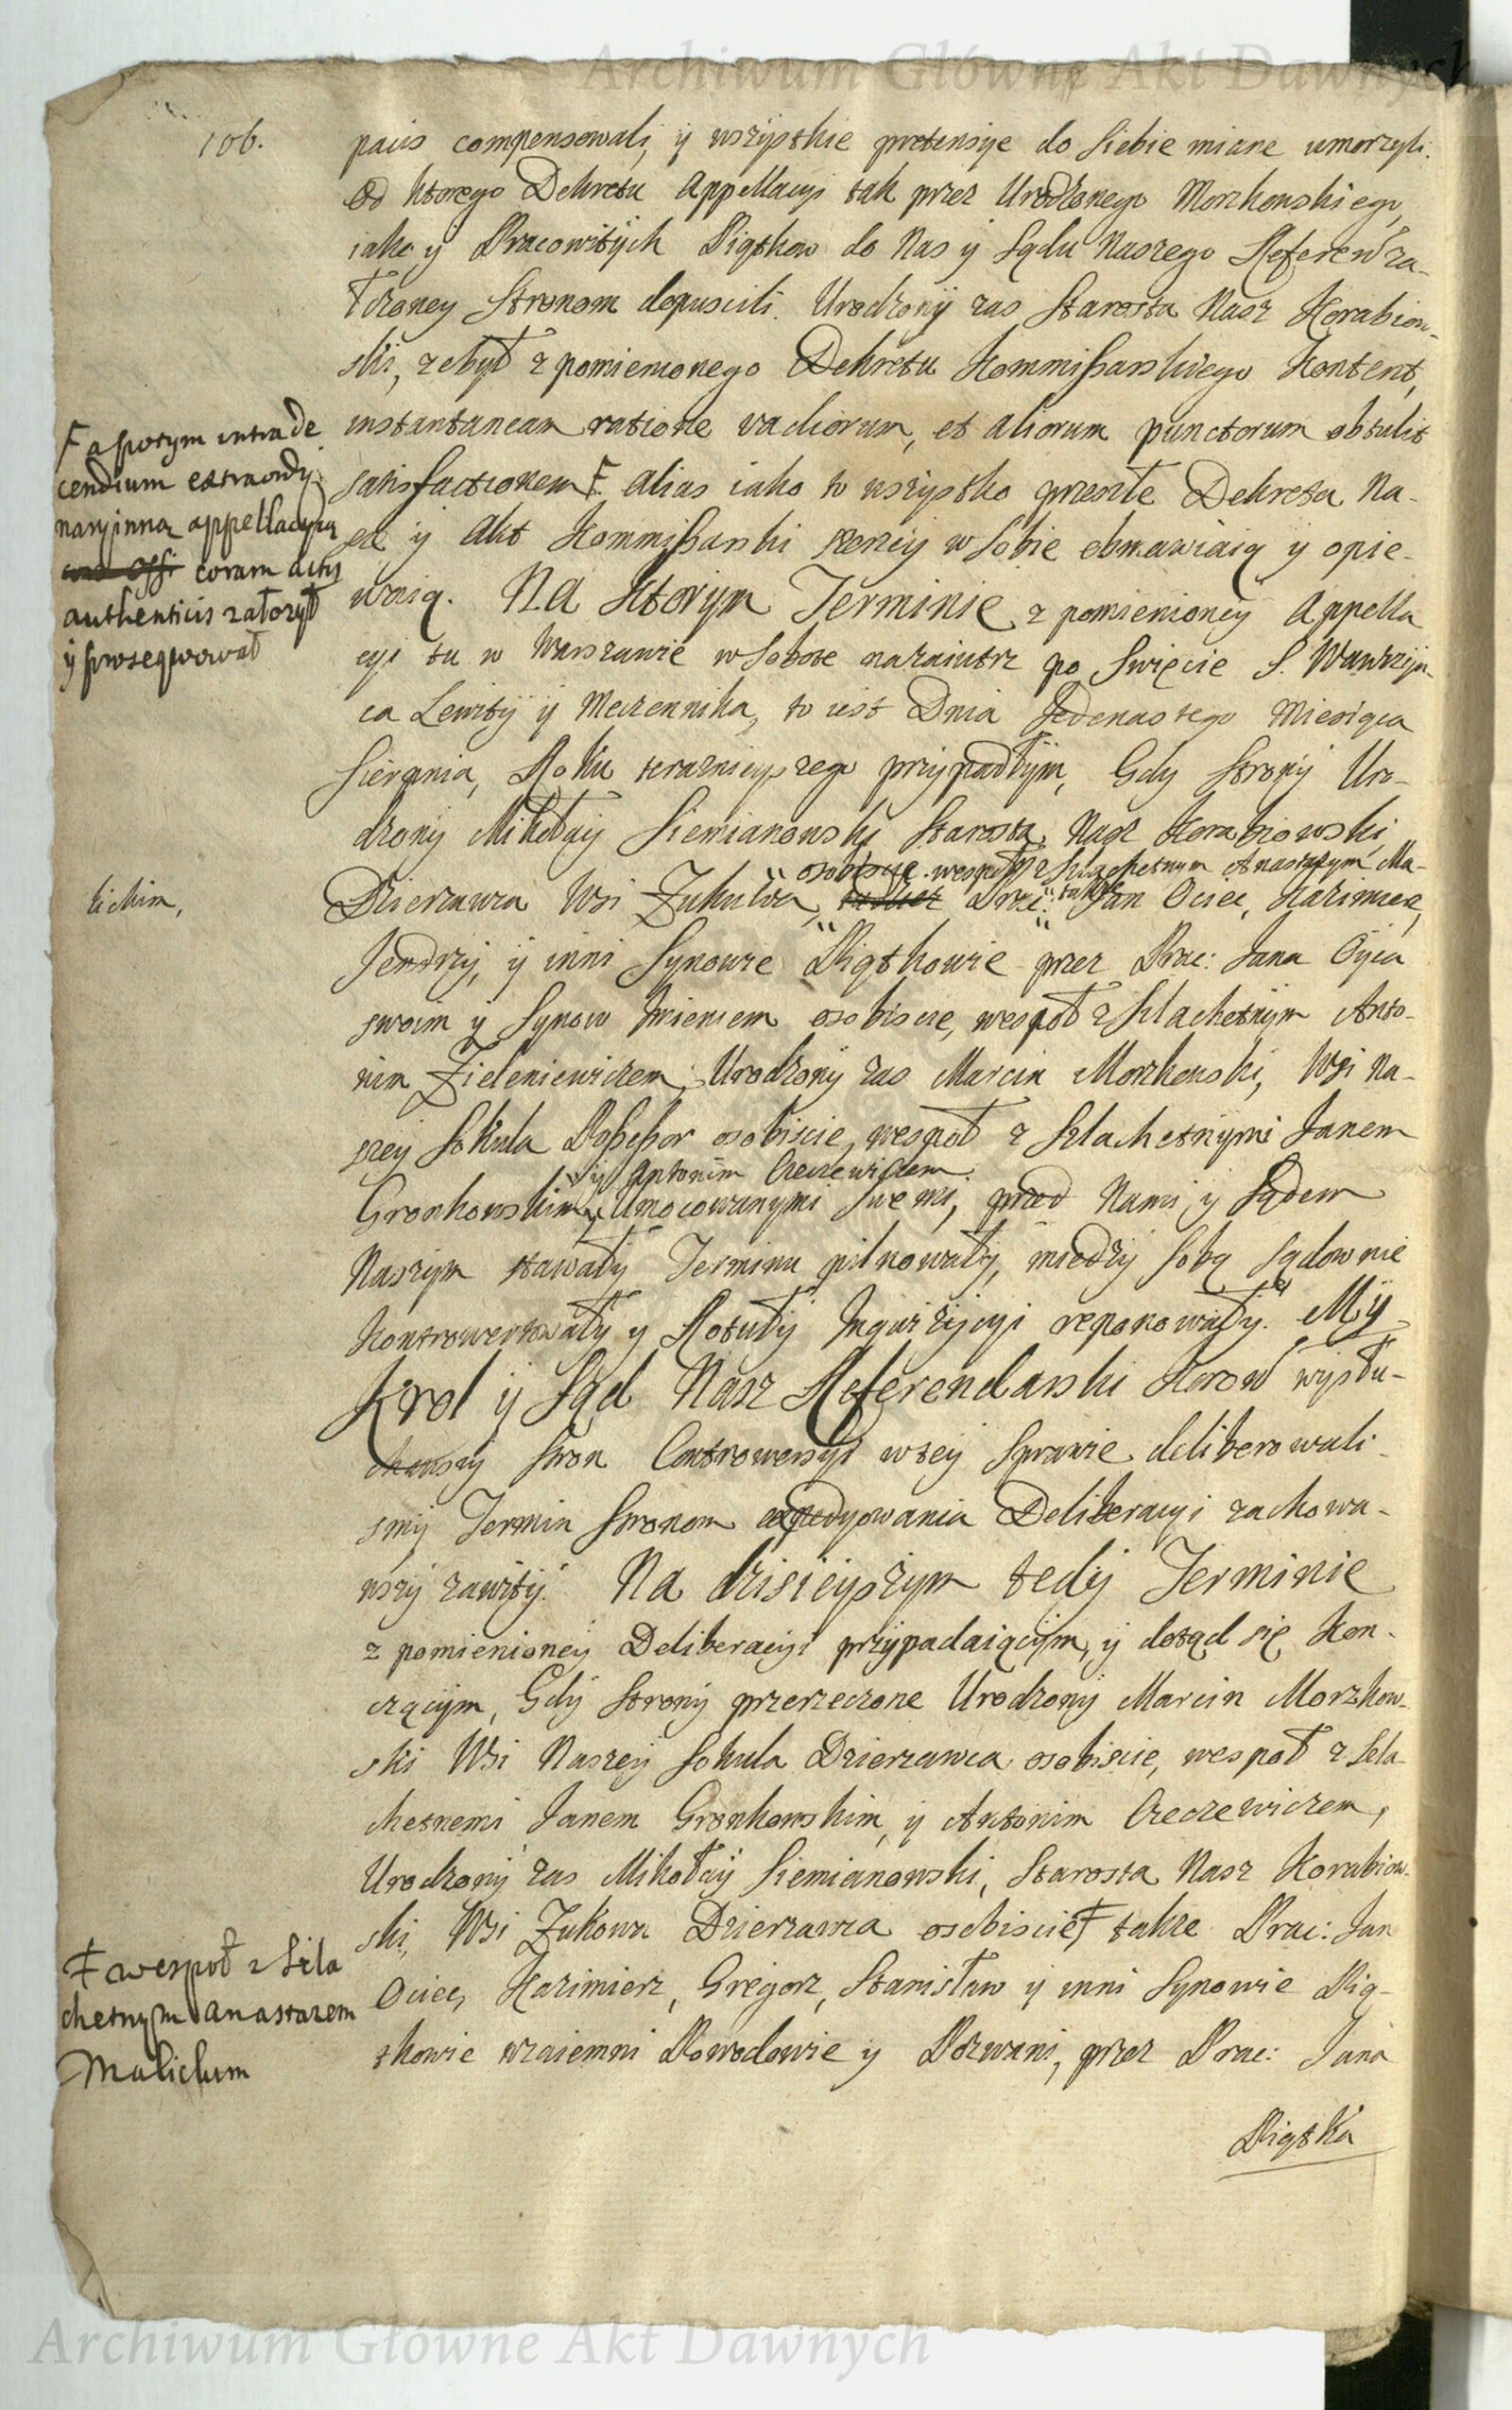 Archiwum Główne Akt Dawnych
106.
pariis compensowali, ÿ wszÿstkie pretensÿe do siebie miane umorzyli.
Od ktorego Dekretu Appellacyi tak przez Urodzonego Morzkowskiego,
iako ÿ Pracowitÿch Piątkow do Nas ÿ Sądu Naszego Referen॑ za-
łożoney Stronom dopuscili. Urodzonÿ zas Starosta Nasz Korabiow-
ski, zebÿł z pomienionego Dekretu Kommissarskiego Kontent,
instantaneam ratione vadiorum, et aliorum punctorum obtulit
satisfactionem Ŧ. alias iako to wszystko przeszłe Dekreta Na-
sze ÿ Akt Kommissarski szerzeÿ w sobie obmawiaią ÿ opie-
waią. Na Ktorÿm Terminie z pomienioneÿ Appella
cyi tu w Warszawie w Sobotę nazaiutrz po Swięcie S. Wawrzÿn-
ca Lewitÿ ÿ Męczennika, to iest Dnia Jedenastego Miesiąca
Sierpnia, Roku teraznieyszego przÿpadłÿm, Gdy Stronÿ Uro-
dzonÿ Mikołaÿ Siemianowski Starosta Nasz Korabiowski,
osobiscie wespoł z Szlachetnym Anastazym Ma-
Dzierzawca Wsi Żukowa, Prac: także Jan Ociec, Kazimierz,
Jendrzÿ, ÿ inni Sÿnowie Piątkowie przez Prac: Jana Oÿca
swoim ÿ Sÿnow Imieniem osobiscie, wespoł z Szlachetnÿm Anto-
nim Zieleniewiczem, Urodzonÿ zas Marcin Morzkowski, Wsi Na-
szeÿ Sokula Possessor osobiscie, wespoł z Szlachetnÿmi Janem
ÿ Antonim Czeczewiczem
Gronkowskim, Umocowanymi swemi, przed Nami ÿ Sądem
Naszÿm stawałÿ Terminu pilnowałÿ, międzÿ sobą sądownie
Kontrowertowałÿ ÿ Rotułÿ Inquizÿcyi reponowałÿ. Mÿ
Krol ÿ Sąd Nasz Referendarski Koron॑ wÿsłu-
chawszÿ stron Controwersyi w teÿ sprawie deliberowali-
smÿ Termin stronom expedyowania Deliberacyi zachowa-
wszÿ zawitÿ. Na dzisieyszÿm tedÿ Terminie
z pomienioneÿ Deliberacÿi przÿpadaiącÿm, ÿ dotąd się Kon-
czącÿm, Gdÿ Stronÿ przerzeczone Urodzonÿ Marcin Morzkow-
ski Wsi Naszeÿ Sokula Dzierzawca osobiscie, wespoł z Szla-
chetnemi Janem Gronkowskim, ÿ Antonim Czeczewiczem,
Urodzonÿ zas Mikołaÿ Siemianowski, Starosta Nasz Korabiow-
ski, Wsi Żukowa Dzierzawca osobiscie Ŧ także Prac: Jan
Ociec, Kazimierz, Gregorz, Stanisław ÿ inni Sÿnowie Pią-
tkowie wzaiemni Powodowie ÿ Pozwani, przez Prac: Jana
Piątka
Ŧ a potym intra de
cendium extraordy-
naryinną appellacyią
coram actis
authenticis założył
ÿ prosequował
lichim,
Ŧ wespoł z Szla
chetnym Anastazem
Malichim
Archiwum Główne Akt Dawnych